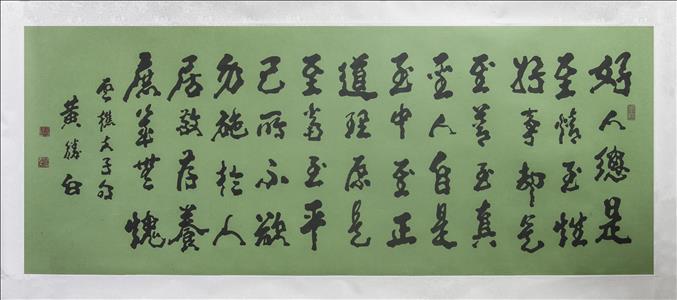 好人總是
至情至性
好事都
至善至真
聖人自是
至中至正
道理原是
至當至平
己所不欲
勿施於人
居敬存養
庶幾無愧
樵夫子句
黃勝